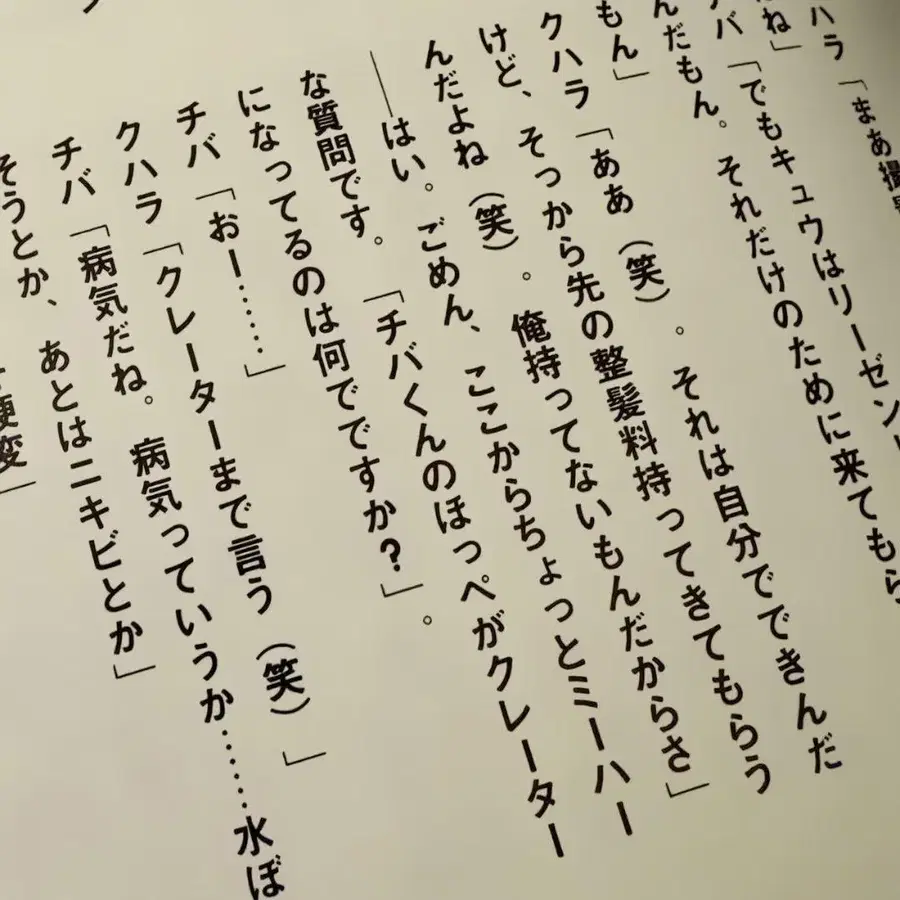 ハラ「まあ撮
だね」
チバ「でもキュウはリーゼン
んだもん。それだけのために来てもら
もん」
クハラ「ああ(笑)。それは自分でできんだ
けど、そっから先の整髪料持ってきてもらう
んだよね(笑)。俺持ってないもんだからさ」
——はい。ごめん、ここからちょっとミーハー
な質問です。「チバくんのほっぺがクレーター
になってるのは何でですか?」。
チバ「おー……」
クハラ「クレーターまで言う(笑)」
チバ「病気だね。病気っていうか……水ぼ
そうとか、あとはニキビとか」
硬変」